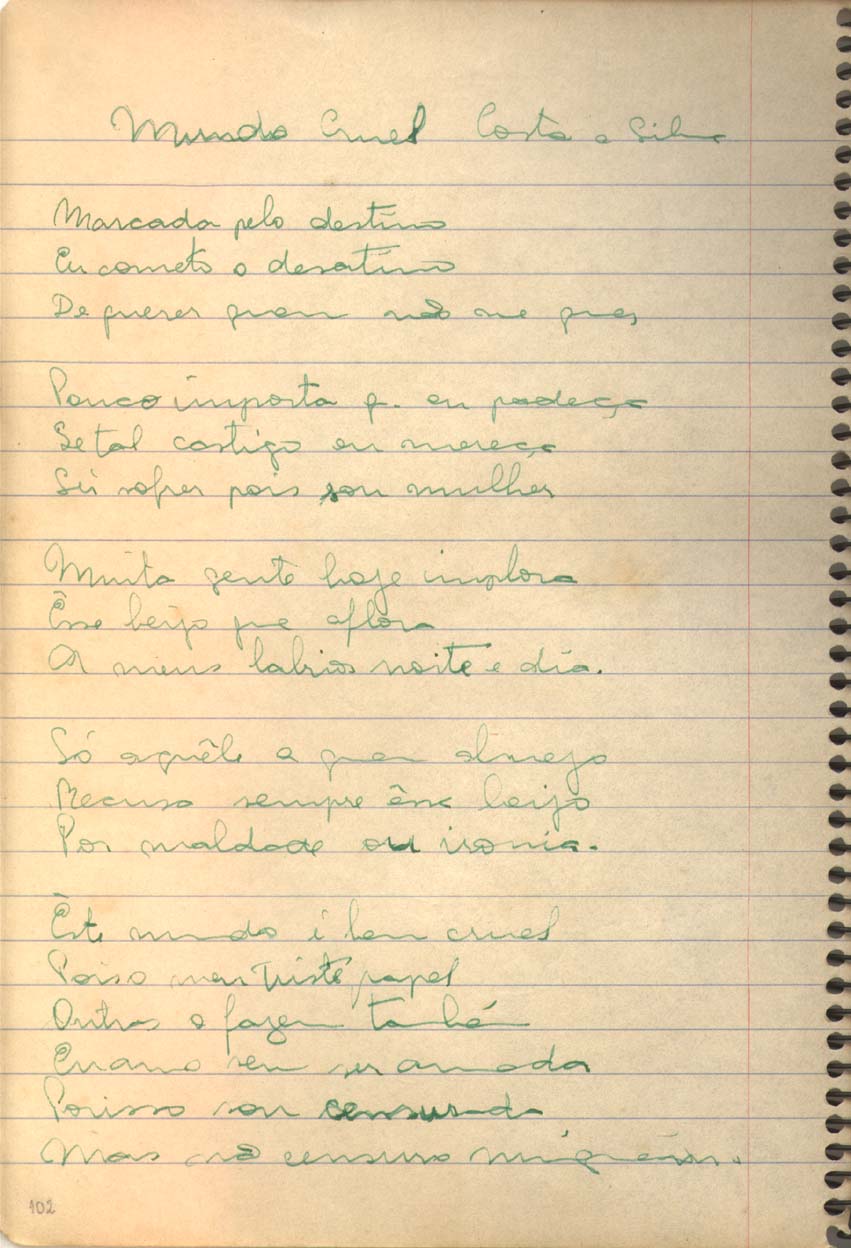 Mundo Cruel Costa e Silva
Marcada pelo destino
Eu cometo o desatino
De querer quem não me quer
Pouco importa q. eu padeça
Se tal castigo eu mereça
Sei sofrer pois sou mulher
Muita gente hoje implora
Êsse beijo que aflora
A meus labios noite e dia.
Só aquêle a quem almejo
Recusa sempre êsse beijo
Por maldade ou ironia.
Êste mundo é bem cruel
Pois o meu triste papel
Outras o fazem também
Eu amo sem ser amada
Porisso sou censurada
Mas não censuro ninguém.
102